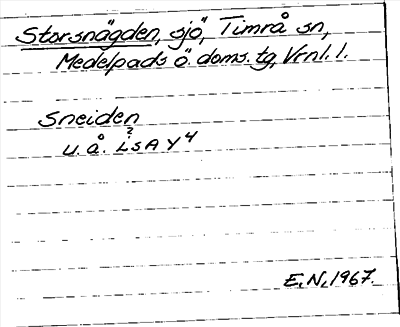 Storsnägden, sjö, Timrå sn,
Medelpads ö. doms. tg, Vrnl. l.
Sneiden
u. å. LSA Y 4
E. N. 1967.